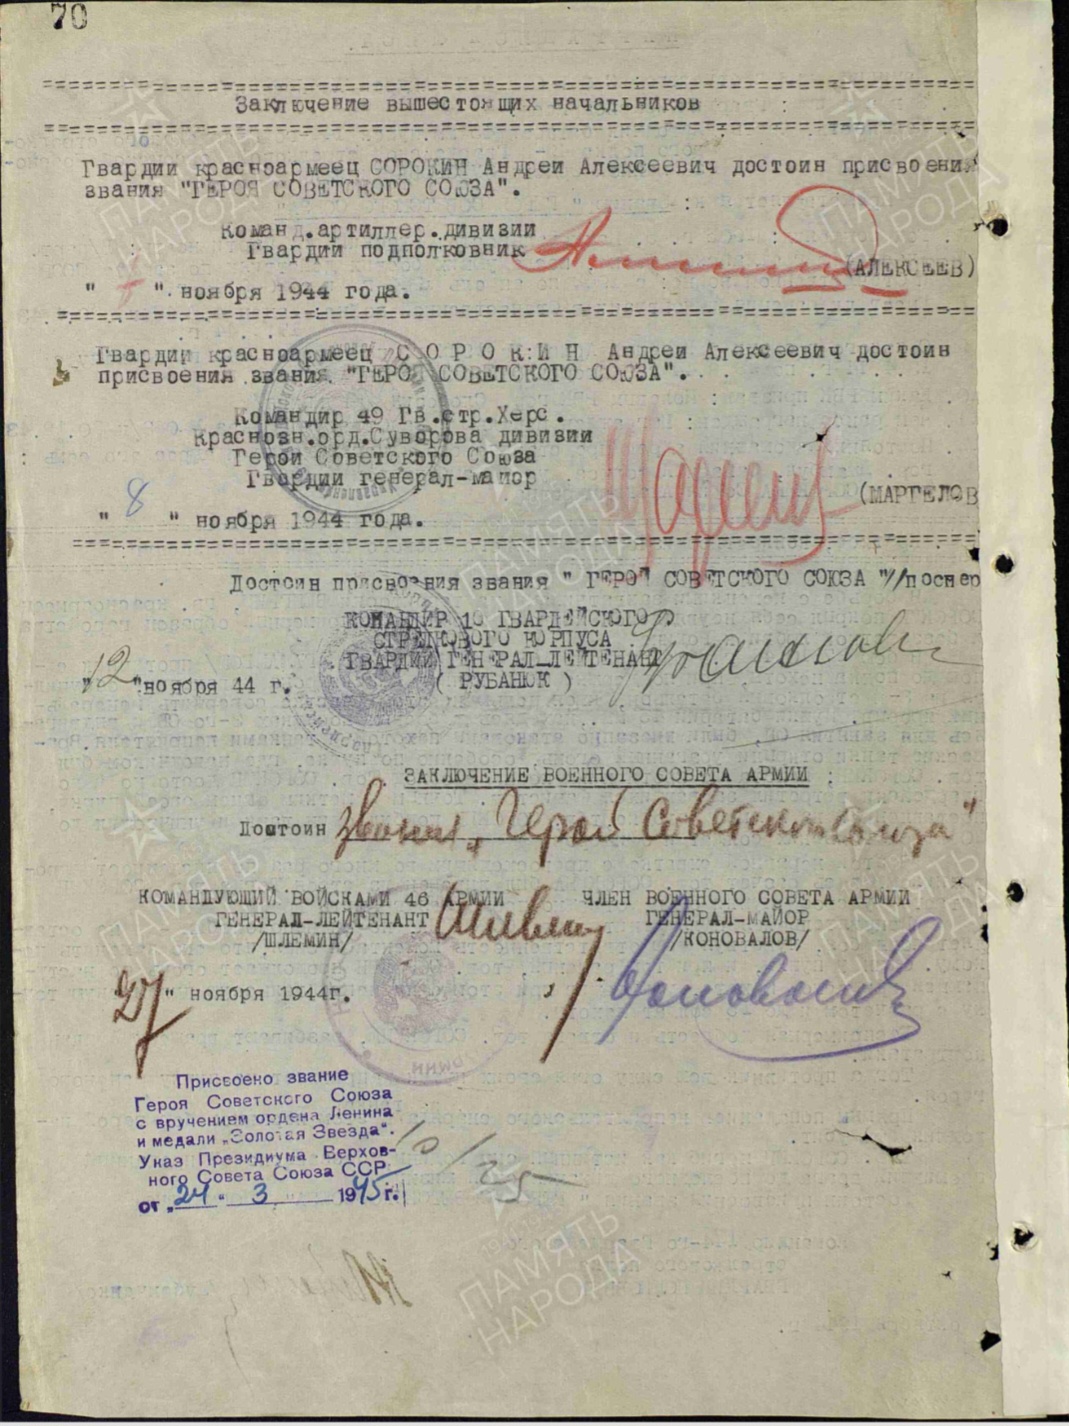 70
Заключение вышестоящих начальников
Гвардии красноармеец СОРОКИН Андреи Алексеевич достоин присвоения
звания "ГЕРОЯ СОВЕТСКОГО СОЮЗА".
Команд.артиллер.дивизии
Гвардии подполковник
(АЛЕКСЕЕВ)
" " ноября 1944 года.
Гвардии красноармеец С О Р О К И Н Андреи Алексеевич достоин
присвоения звания "ГЕРОЯ СОВЕТСКОГО СОЮЗА".
Командир 49 Гв.стр.Херс.
Краснозн.орд.Суворова дивизии
Герои Советского Союза
Гвардии генерал-маиор
(МАРГЕЛОВ
" 8 " ноября 1944 года.
Достоин присвоения звания " ГЕРОЙ СОВЕТСКОГО СОЮЗА "//посмер
КОМАНДИР 10 ГВАРДЕЙСКОГО
СТРЕЛКОВОГО КОРПУСА
ГВАРДИИ ГЕНЕРАЛ-ЛЕЙТЕНАНТ
( РУБАНЮК )
"12" ноября 44 г.
ЗАКЛЮЧЕНИЕ ВОЕННОГО СОВЕТА АРМИИ
Достоин звания „Герой Советского Союза"
КОМАНДУЮЩИЙ ВОЙСКАМИ 46 АРМИИ ЧЛЕН ВОЕННОГО СОВЕТА АРМИИ
ГЕНЕРАЛ-ЛЕЙТЕНАНТ ГЕНЕРАЛ-МАЙОР
/ШЛЕМИН/ /КОНОВАЛОВ/
27" ноября 1944г.
Присвоено звание
Героя Советского Союза
с вручением ордена Ленина
и медали „Золотая Звезда".
Указ Президиума Верхов-
ного Совета Союза ССР
от „24" 3 1945 г.
ПАМЯТЬ
НАРОДА